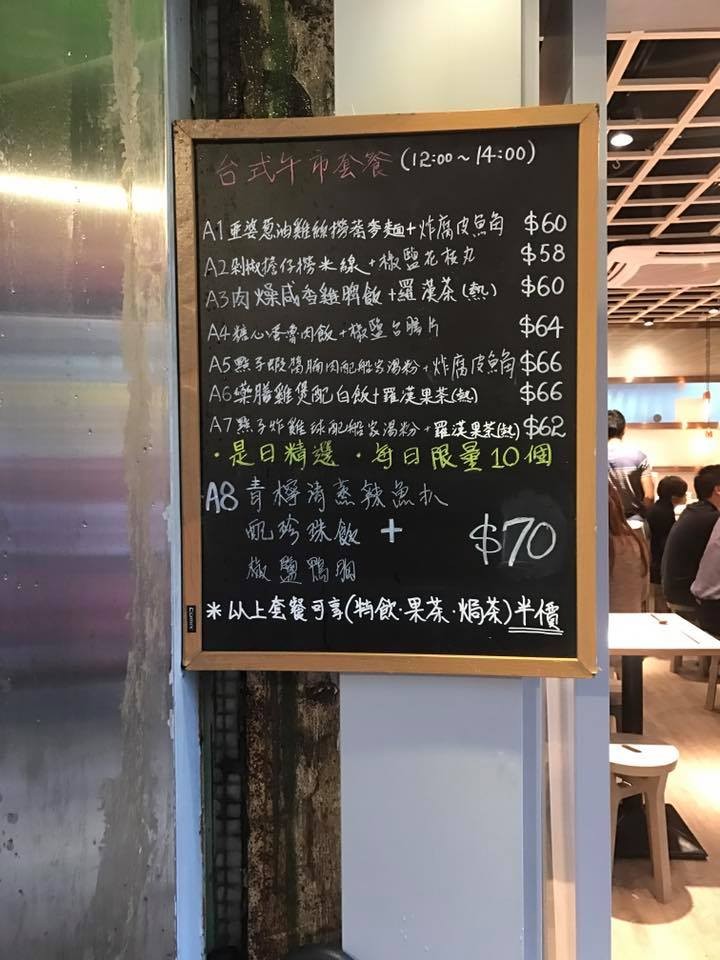 台式午市套餐 (12:00～14:00)
A1 亜婆葱油雞絲撈蕎麥麵+炸腐皮魚角 $60
A2 剁椒擔仔撈米線+椒鹽花枝丸 $58
A3 肉燥咸香雞髀飯+羅漢茶(熱) $60
A4 糖心香魯肉飯+椒鹽台腸片 $64
A5 點子蝦醬腩肉配船家湯粉+炸腐皮魚角 $66
A6 藥膳雞煲配白飯+羅漢果茶(熱) $66
A7 點子炸雞球配船家湯粉+羅漢果茶(熱) $62
·是日精選·每日限量10個
A8 青檸清蒸辣魚扒
配珍珠飯 + $70
椒鹽鴨胸
*以上套餐可享(特飲·果茶·焗茶)半價